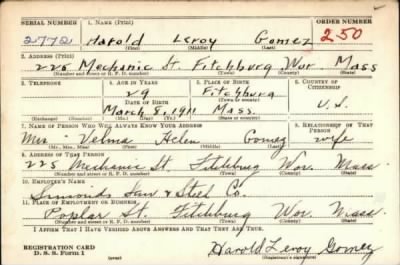 SERIAL NUMBER 1. NAME (Print) ORDER NUMBER
2772 Harold Leroy Gomez 250
(First) (Middle) (Last)
2. ADDRESS (Print)
225 Mechanic St. Fitchburg Wor. Mass
(Number and street or R. F. D. number) (Town) (County) (State)
3. TELEPHONE 4. AGE IN YEARS 5. PLACE OF BIRTH 6. COUNTRY OF CITIZENSHIP
29 Fitchburg
DATE OF BIRTH (Town or county)
March 8, 1911 Mass. U.S.
(Exchange) (Number) (Mo.) (Day) (Yr.) (State or country)
7. NAME OF PERSON WHO WILL ALWAYS KNOW YOUR ADDRESS 8. RELATIONSHIP OF THAT PERSON
Mrs Velma Helen Gomez wife
(Mr., Mrs., Miss) (First) (Middle) (Last)
9. ADDRESS OF THAT PERSON
225 Mechanic St. Fitchburg Wor. Mass.
(Number and street or R. F. D. number) (Town) (County) (State)
10. EMPLOYER'S NAME
Simonds Saw & Steel Co.
11. PLACE OF EMPLOYMENT OR BUSINESS
Poplar St. Fitchburg Wor. Mass.
(Number and street or R. F. D. number) (Town) (County) (State)
I AFFIRM THAT I HAVE VERIFIED ABOVE ANSWERS AND THAT THEY ARE TRUE.
REGISTRATION CARD
D. S. S. Form 1 Harold Leroy Gomez
(over) (Registrant's signature)